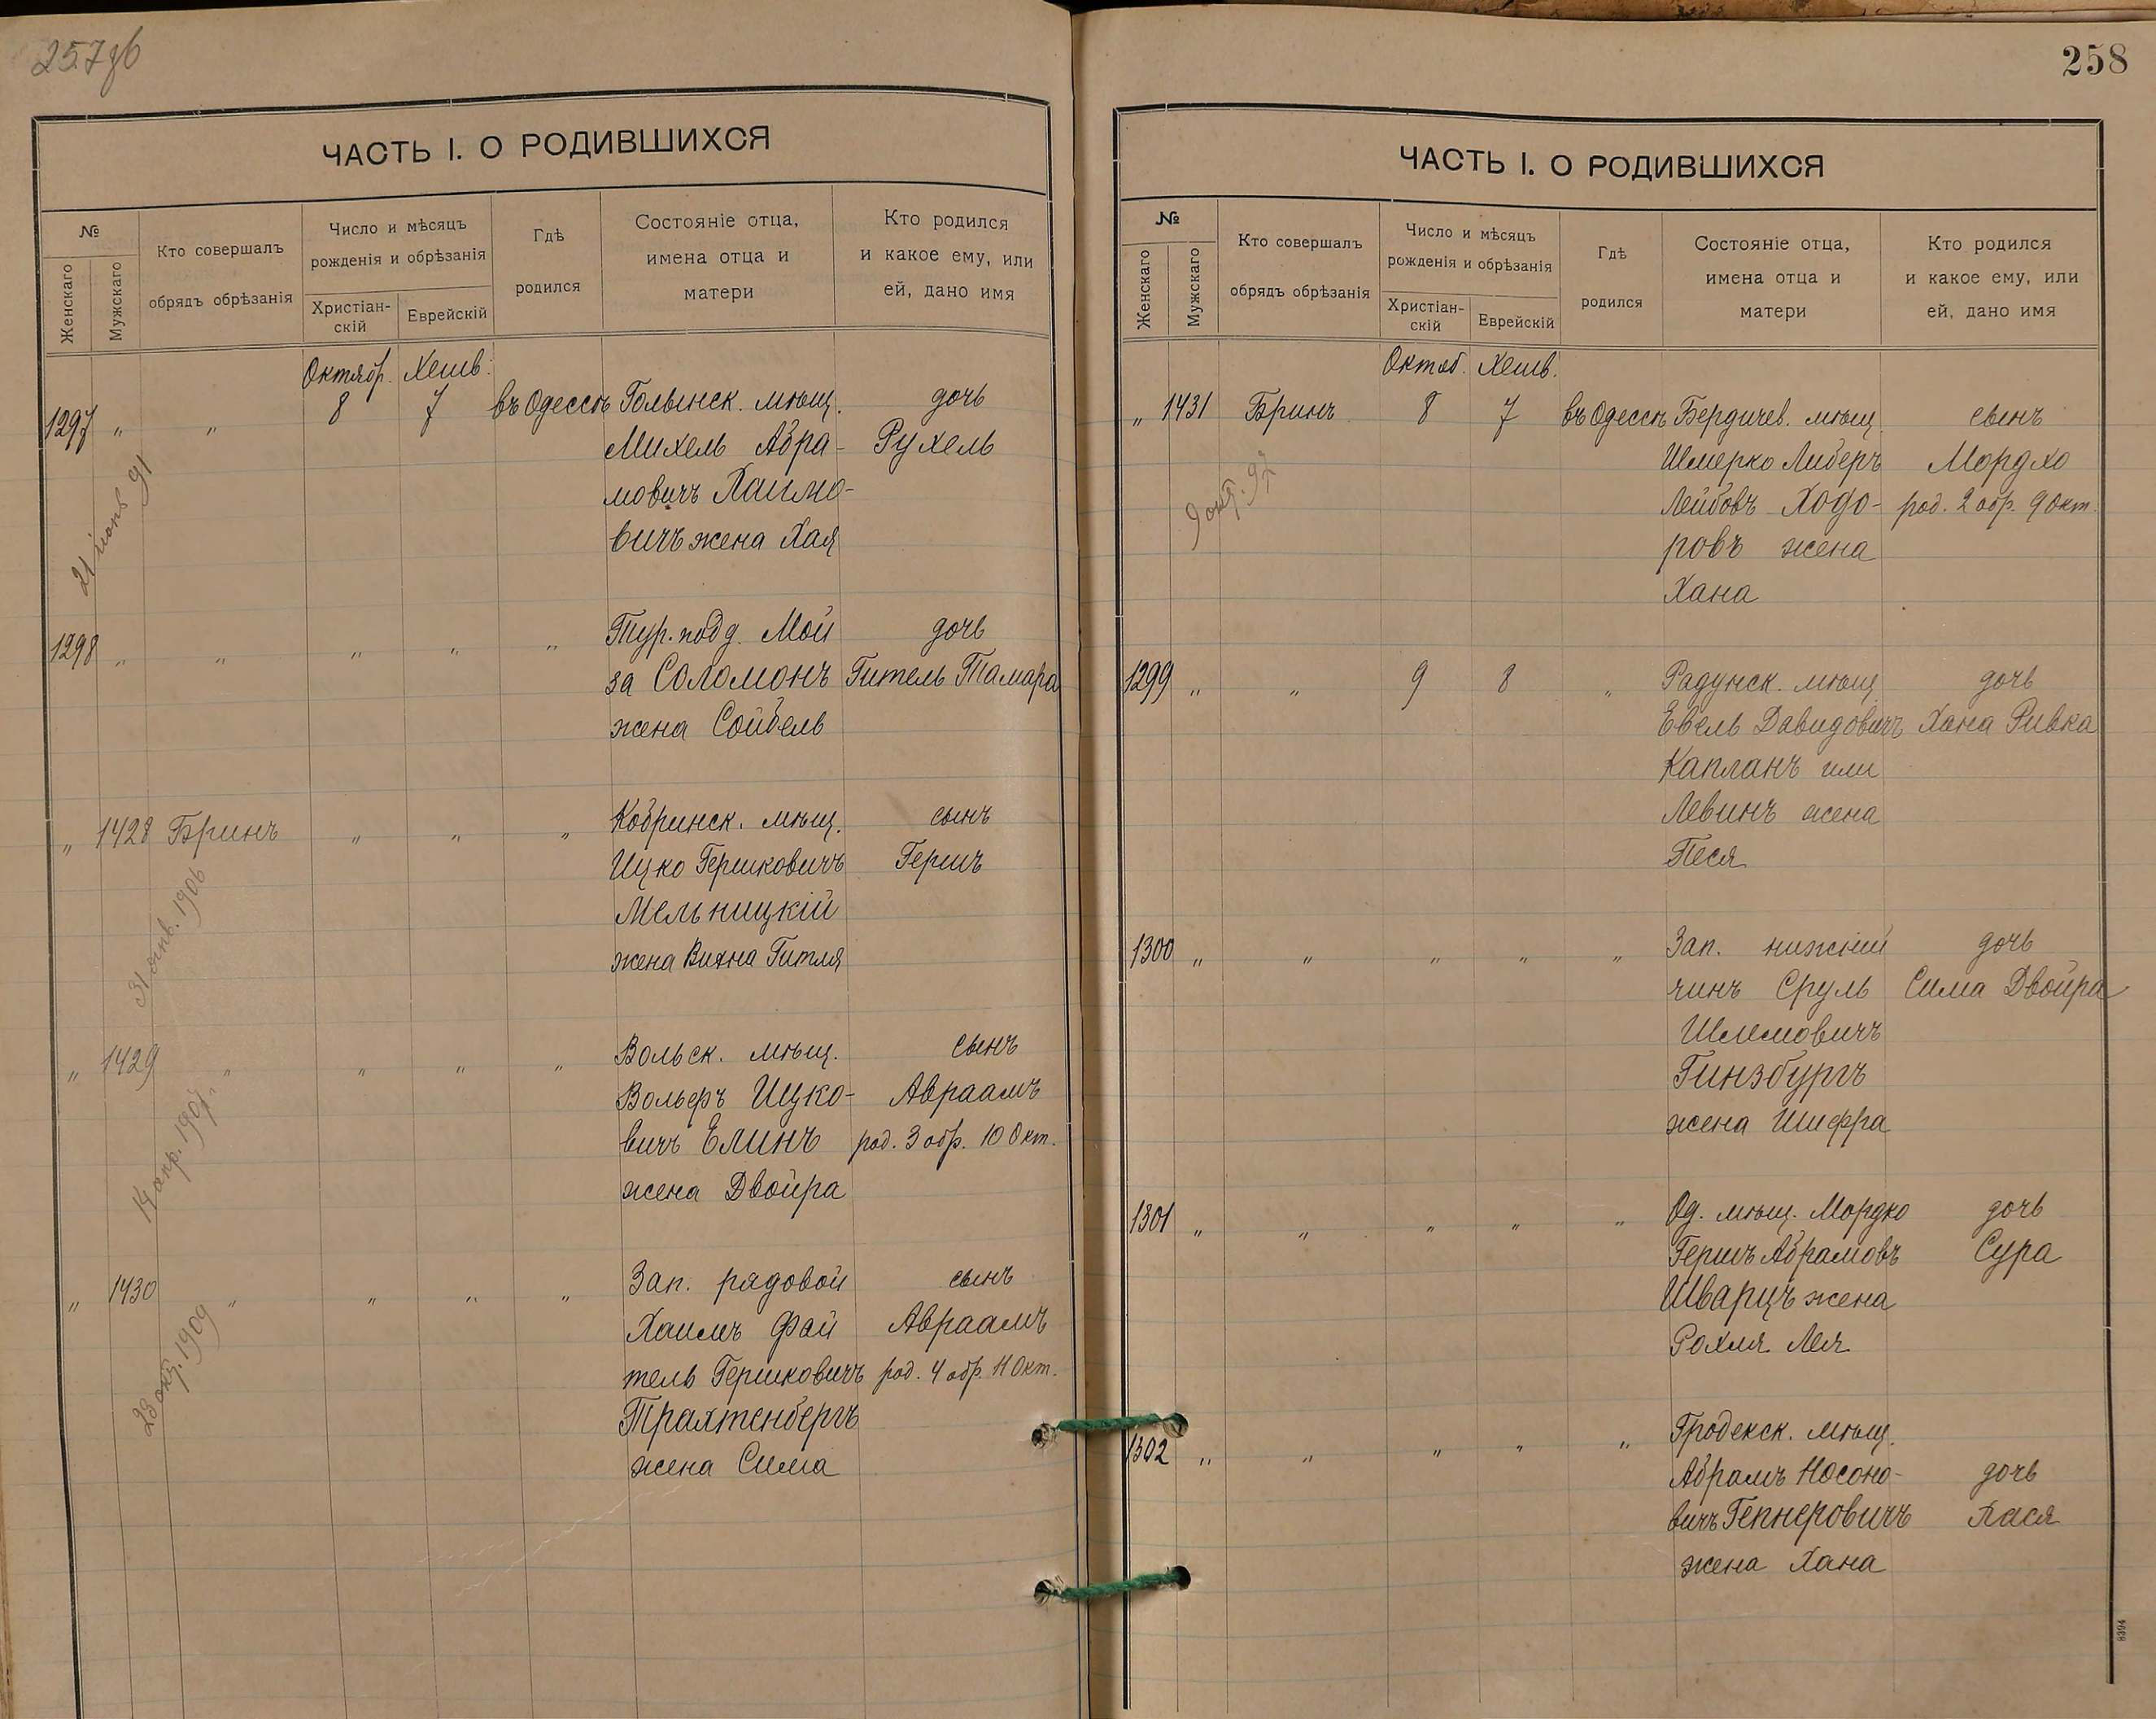 257об
ЧАСТЬ I. О РОДИВШИХСЯ
№
Женскаго
Мужскаго
Кто совершалъ
обрядъ обрѣзанія
Число и мѣсяцъ
рожденія и обрѣзанія
Христіан-
скій
Еврейскій
Гдѣ
родился
Состояніе отца,
имена отца и
матери
Кто родился
и какое ему, или
ей, дано имя
Октябр. Хешв.
1297 " " 8 7 въ Одессѣ Голынск. мѣщ. дочь
Михель Абра- Рухель
мовичъ Хаимо-
вичъ жена Хая
1298 " " " " " Тур. подд. Мой дочь
за Соломонъ Гитель Тамара
жена Сойбель
" 1428 Бринъ " " " Кобринск. мѣщ. сынъ
Ицко Гершковичъ Гершъ
Мельницкій
31 янв. 1906
жена Вихна Гитля
" 1429 " " " " Вольск. мѣщ. сынъ
Вольфъ Ицко- Авраамъ
вичъ Елинъ род. 3 обр. 10 Окт.
14 апр. 1907
жена Двойра
" 1430 " " " " Зап. рядовой сынъ
Хаимъ Фай Авраамъ
тель Гершковичъ род. 4 обр. 11 Окт.
23 окт. 1909
Трахтенбергъ
жена Сима
258
ЧАСТЬ I. О РОДИВШИХСЯ
№
Женскаго
Мужскаго
Кто совершалъ
обрядъ обрѣзанія
Число и мѣсяцъ
рожденія и обрѣзанія
Христіан-
скій
Еврейскій
Гдѣ
родился
Состояніе отца,
имена отца и
матери
Кто родился
и какое ему, или
ей, дано имя
Октяб. Хешв.
" 1431 Бринъ 8 7 въ Одессѣ Бердичев. мѣщ. сынъ
Шмерко Либеръ Мордхо
Лейбовъ Ходо- род. 2 обр. 9 Окт.
ровъ жена
Хана
1299 " " 9 8 " Радунск. мѣщ. дочь
Евель Давидовичъ Хана Ривка
Капланъ или
Левинъ жена
Песя
1300 " " " " " Зап. нижній дочь
чинъ Сруль Сима Двойра
Шлемовичъ
Гинзбургъ
жена Шифра
1301 " " " " " Од. мѣщ. Мордко дочь
Гершъ Абрамовъ Сура
Шварцъ жена
Рохля Лея
1302 " " " " " Гродекск. мѣщ.
Абрамъ Носоно- дочь
вичъ Гепнеровичъ Хася
жена Хана
8394